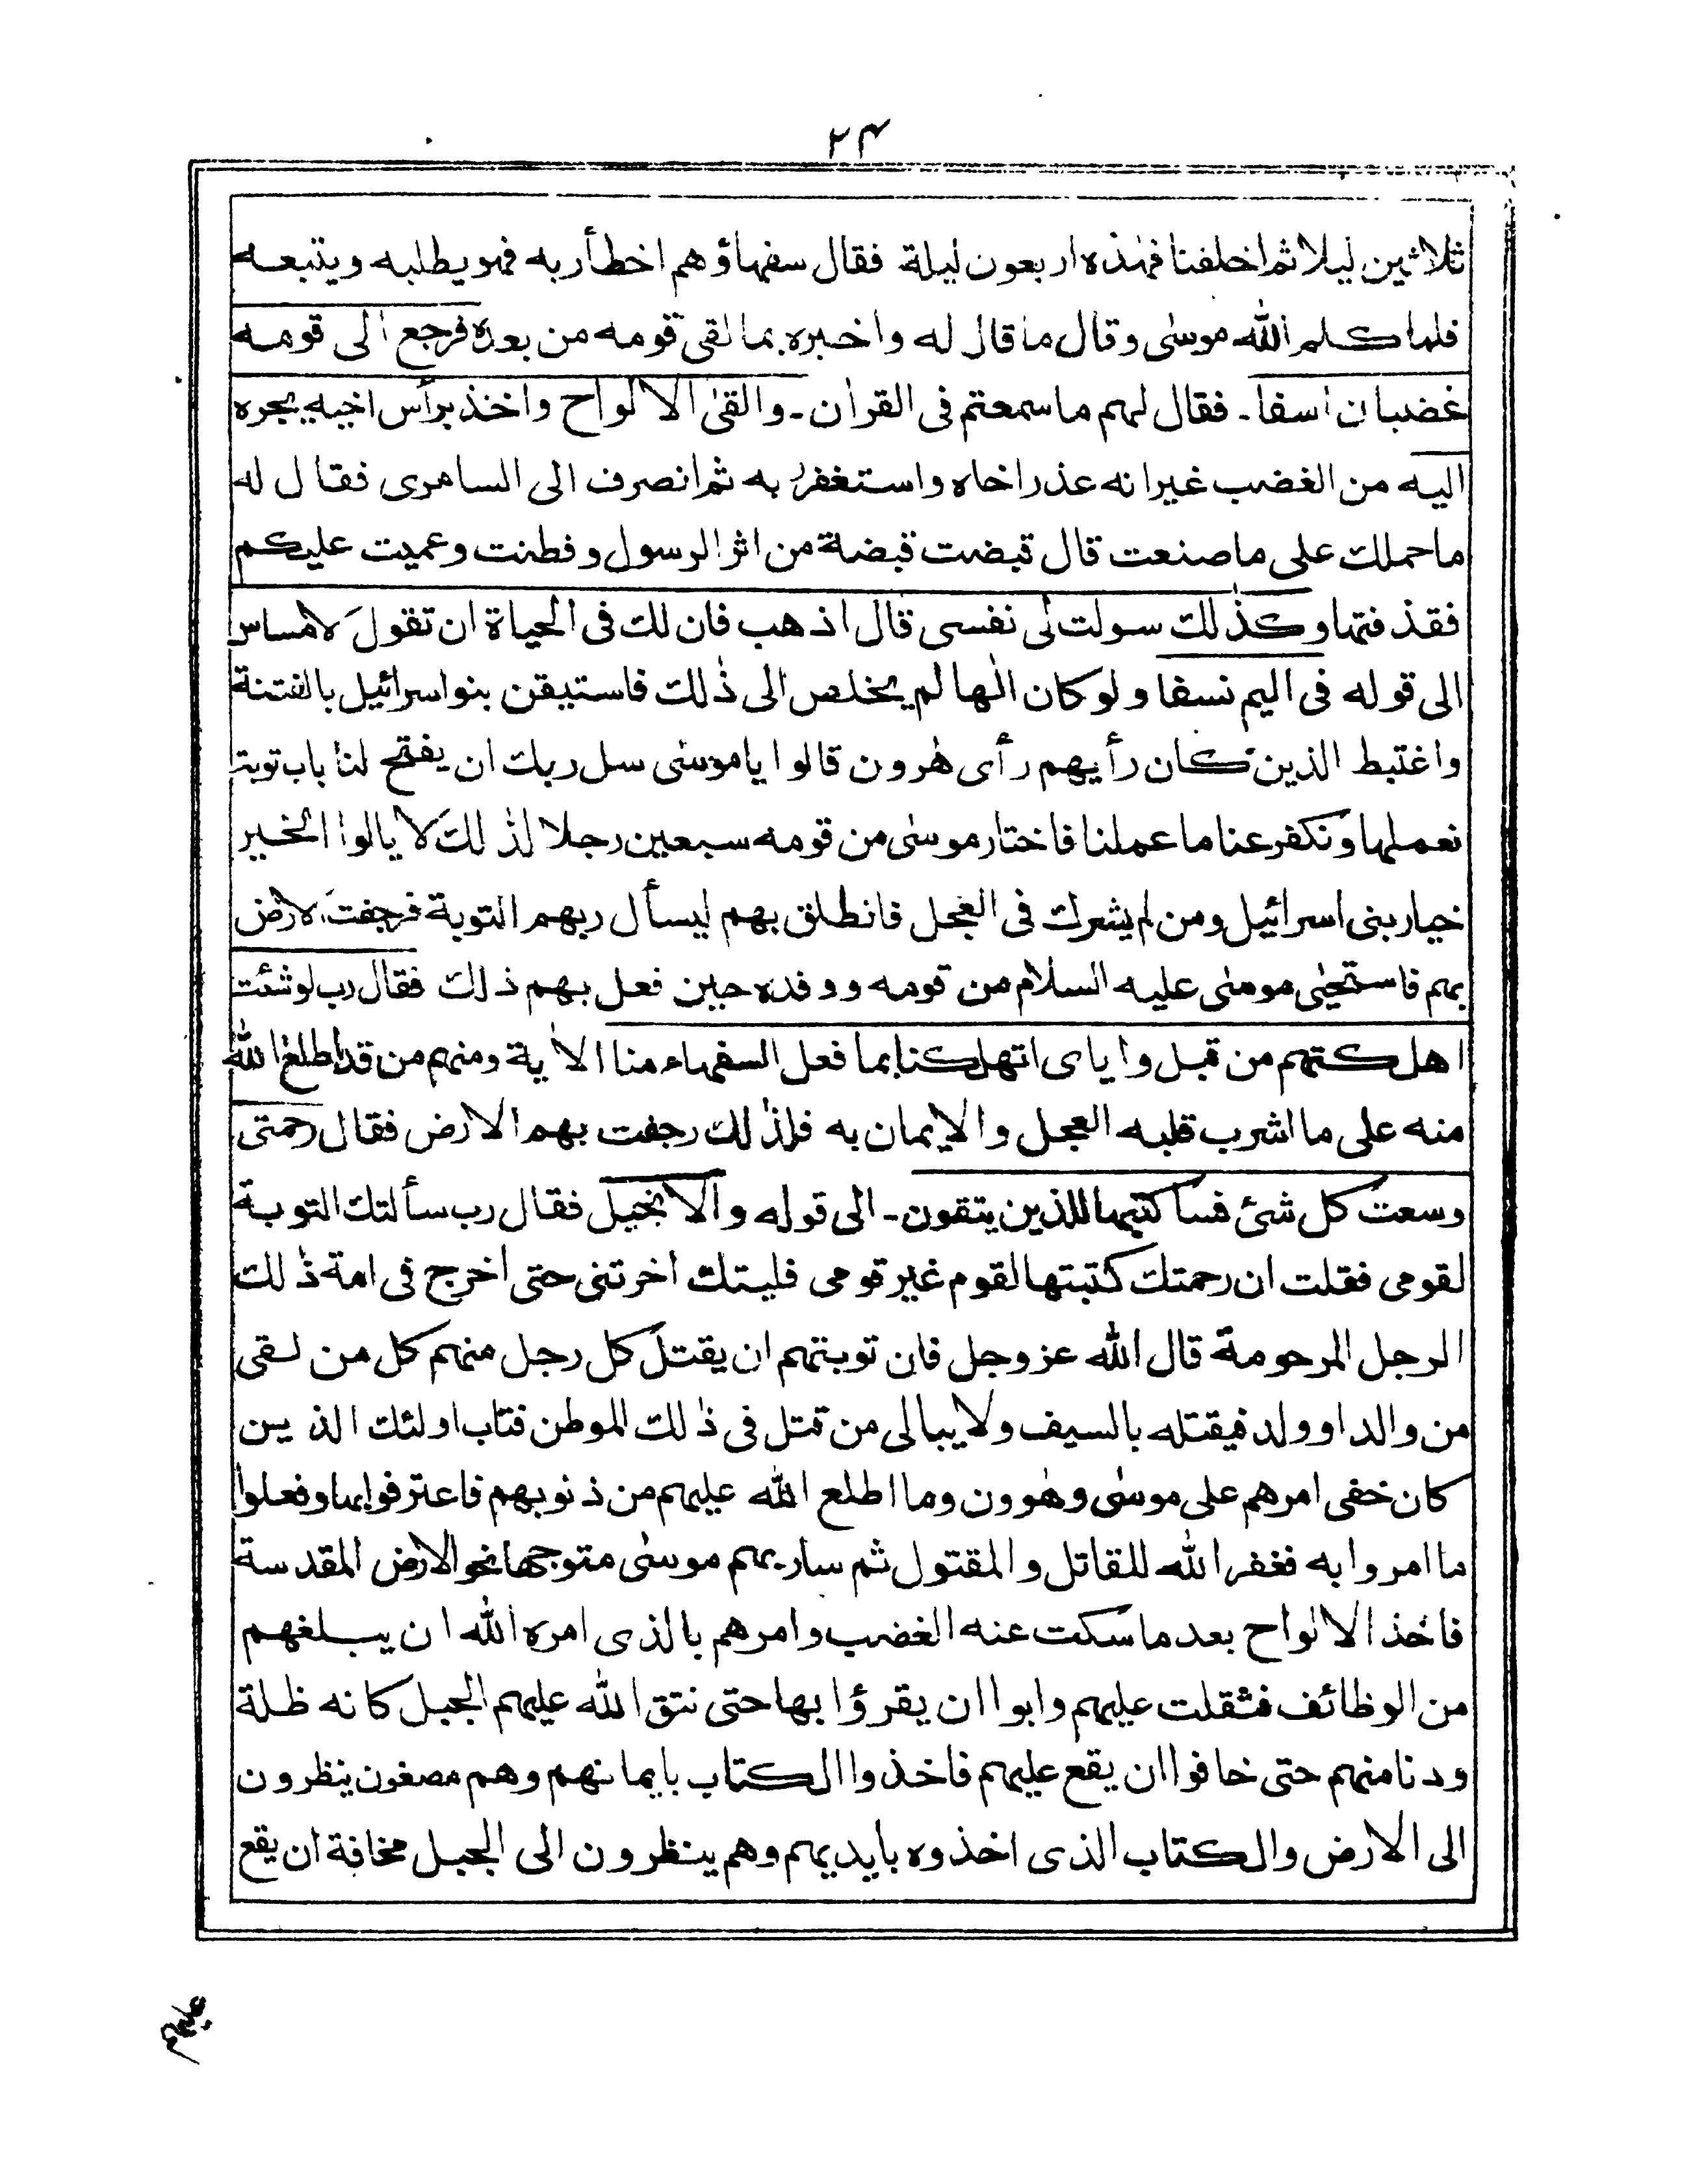 ٢٤
ثلاثين ليلا ثم اخلفنا فهذه اربعون ليلة فقال سفهاؤهم اخطأ ربه فهو يطلبه ويتبعه
فلما كلم الله موسٰى وقال ما قال له واخبره بما لقى قومه من بعده فرجع الى قومه
غضبان اسفا ـ فقال لهم ما سمعتم فى القرأن ـ والقىٰ الالواح واخذ برأس اخيه يجره
اليه من الغضب غير انه عذر اخاه واستغفر به ثم انصرف الى السامرى فقال له
ما حملك على ما صنعت قال قبضت قبضة من اثر الرسول وفطنت وعميت عليكم
فقذفتها وكذٰلك سولت لى نفسى قال اذهب فان لك فى الحياة ان تقول لامساس
الى قوله فى اليم نسفا ولو كان الٰها لم يخلص الى ذٰلك فاستيقن بنو اسرائيل بالفتنة
واغتبط الذين كان رأيهم رأى هٰرون قالوا يا موسٰى سل ربك ان يفتح لنا باب توبة
نعملها ونكفر عنا ما عملنا فاختار موسٰى من قومه سبعين رجلا لذٰلك لا يالوا الخير
خيار بنى اسرائيل ومن لم يشرك فى العجل فانطلق بهم ليسأل ربهم التوبة فرجفت الارض
بهم فاستحيٰى موسٰى عليه السلام من قومه ووفده حين فعل بهم ذلك فقال رب لو شئت
اهلكتهم من قبل واياى اتهلكنا بما فعل السفهاء منا الأية ومنهم من قد اطلع الله
منه على ما اشرب قلبه العجل والايمان به فلذٰلك رجفت بهم الارض فقال رحمتى
وسعت كل شئ فسأكتبها للذين يتقون ـ الى قوله والانجيل فقال رب سألتك التوبة
لقومى فقلت ان رحمتك كتبتها لقوم غير قومى فليتك اخرتنى حتى اخرج فى امة ذٰلك
الرجل المرحومة قال الله عز وجل فان توبتهم ان يقتل كل رجل منهم كل من لقى
من والد او ولد فيقتله بالسيف ولا يبالى من قتل فى ذٰلك الموطن فتاب اولئك الذين
كان خفى امرهم على موسٰى وهٰرون وما اطلع الله عليهم من ذنوبهم فاعترفوا بها وفعلوا
ما امروا به فغفر الله للقاتل والمقتول ثم سار بهم موسٰى متوجها نحو الارض المقدسة
فاخذ الالواح بعد ما سكت عنه الغضب وامرهم بالذى امره الله ان يبلغهم
من الوظائف فثقلت عليهم وابوا ان يقرؤا بها حتى نتق الله عليهم الجبل كانه ظلة
ودنا منهم حتى خافوا ان يقع عليهم فاخذوا الكتاب بايمانهم وهم مصغون ينظرون
الى الارض والكتاب الذى اخذوه بايديهم وهم ينظرون الى الجبل مخافة ان يقع
عليهم